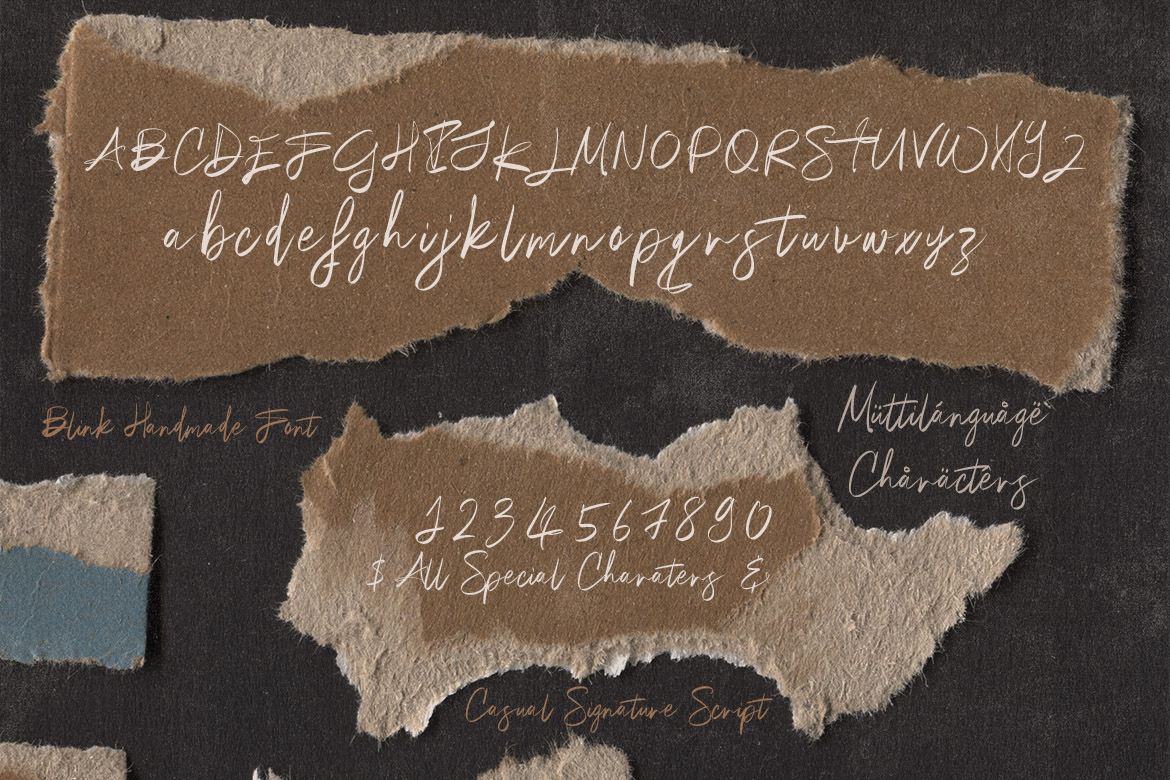 ABCDEFGHIJKLMNOPQRSTUVWXYZ
abcdefghijklmnopqrstuvwxyz
Blink Handmade Font
Müttilánguågë
Chåräctêrs
1234567890
$ All Special Charaters &
Casual Signature Script